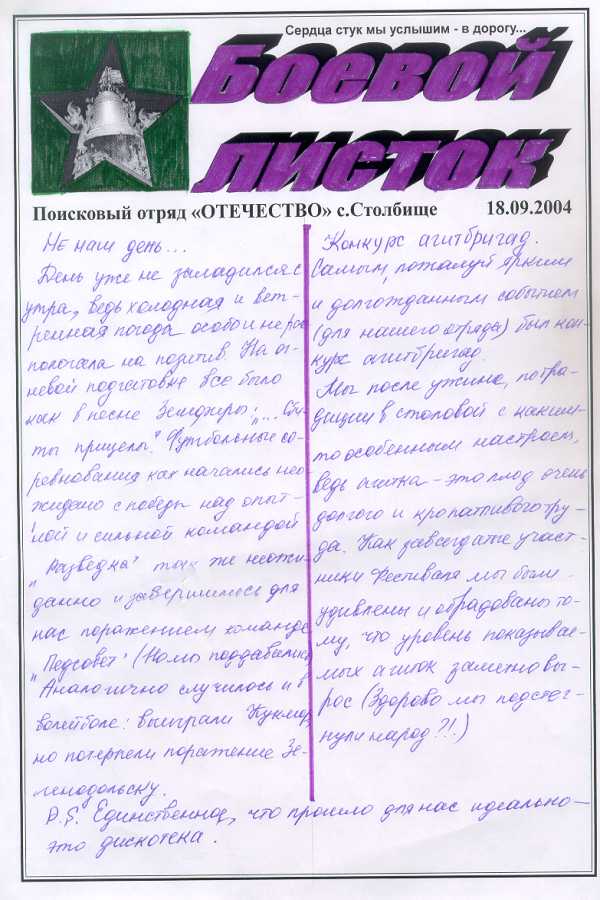 Сердца стук мы услышим - в дорогу...
Боевой
листок
Поисковый отряд «ОТЕЧЕСТВО» с.Столбище 18.09.2004
Не наш день...
День уже не заладился с
утра, ведь холодная и вет-
ренная погода особо и не рас
пологала на позитив. На ог-
невой подготовке все было
как в песне Земфиры: "... Сби-
ты прицелы". Футбольные со-
ревнования как начались нео-
жидано с победы над опыт-
ной и сильной командой
"Разведка" так же неожи-
данно и завершились для
нас поражением команде
"Педсовет" (Но мы поддавались)
Аналогично случилось и в
волейболе: выиграли Кукмор,
но потерпели поражение Зе-
ленодольску.
P.S. Единственное, что прошло для нас идеально -
это дискотека.
Конкурс агитбригад.
Самым, пожалуй ярким
и долгожданным событием
(для нашего отряда) был кон-
курс агитбригад.
Мы после ужина, по тра-
диции в столовой с каким-
то особенным настроем,
ведь агитка - это плод очень
долгого и кропатливого тру-
да. Как завсегдатые участ-
ники Фестиваля мы были
удивлены и обрадованы то-
му, что уровень показывае-
мых агиток заметно вы-
рос (Здорово мы подстег-
нули народ?!!)